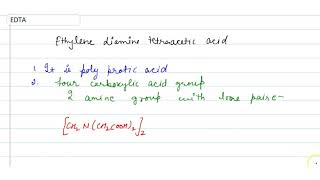 EDTA
Ethylene diamine tetroacetic acid
1. It is poly protic acid
2. four carboxylic acid group
2 amine group with lone pairs-
[CH2 N(CH2COOH)2]2